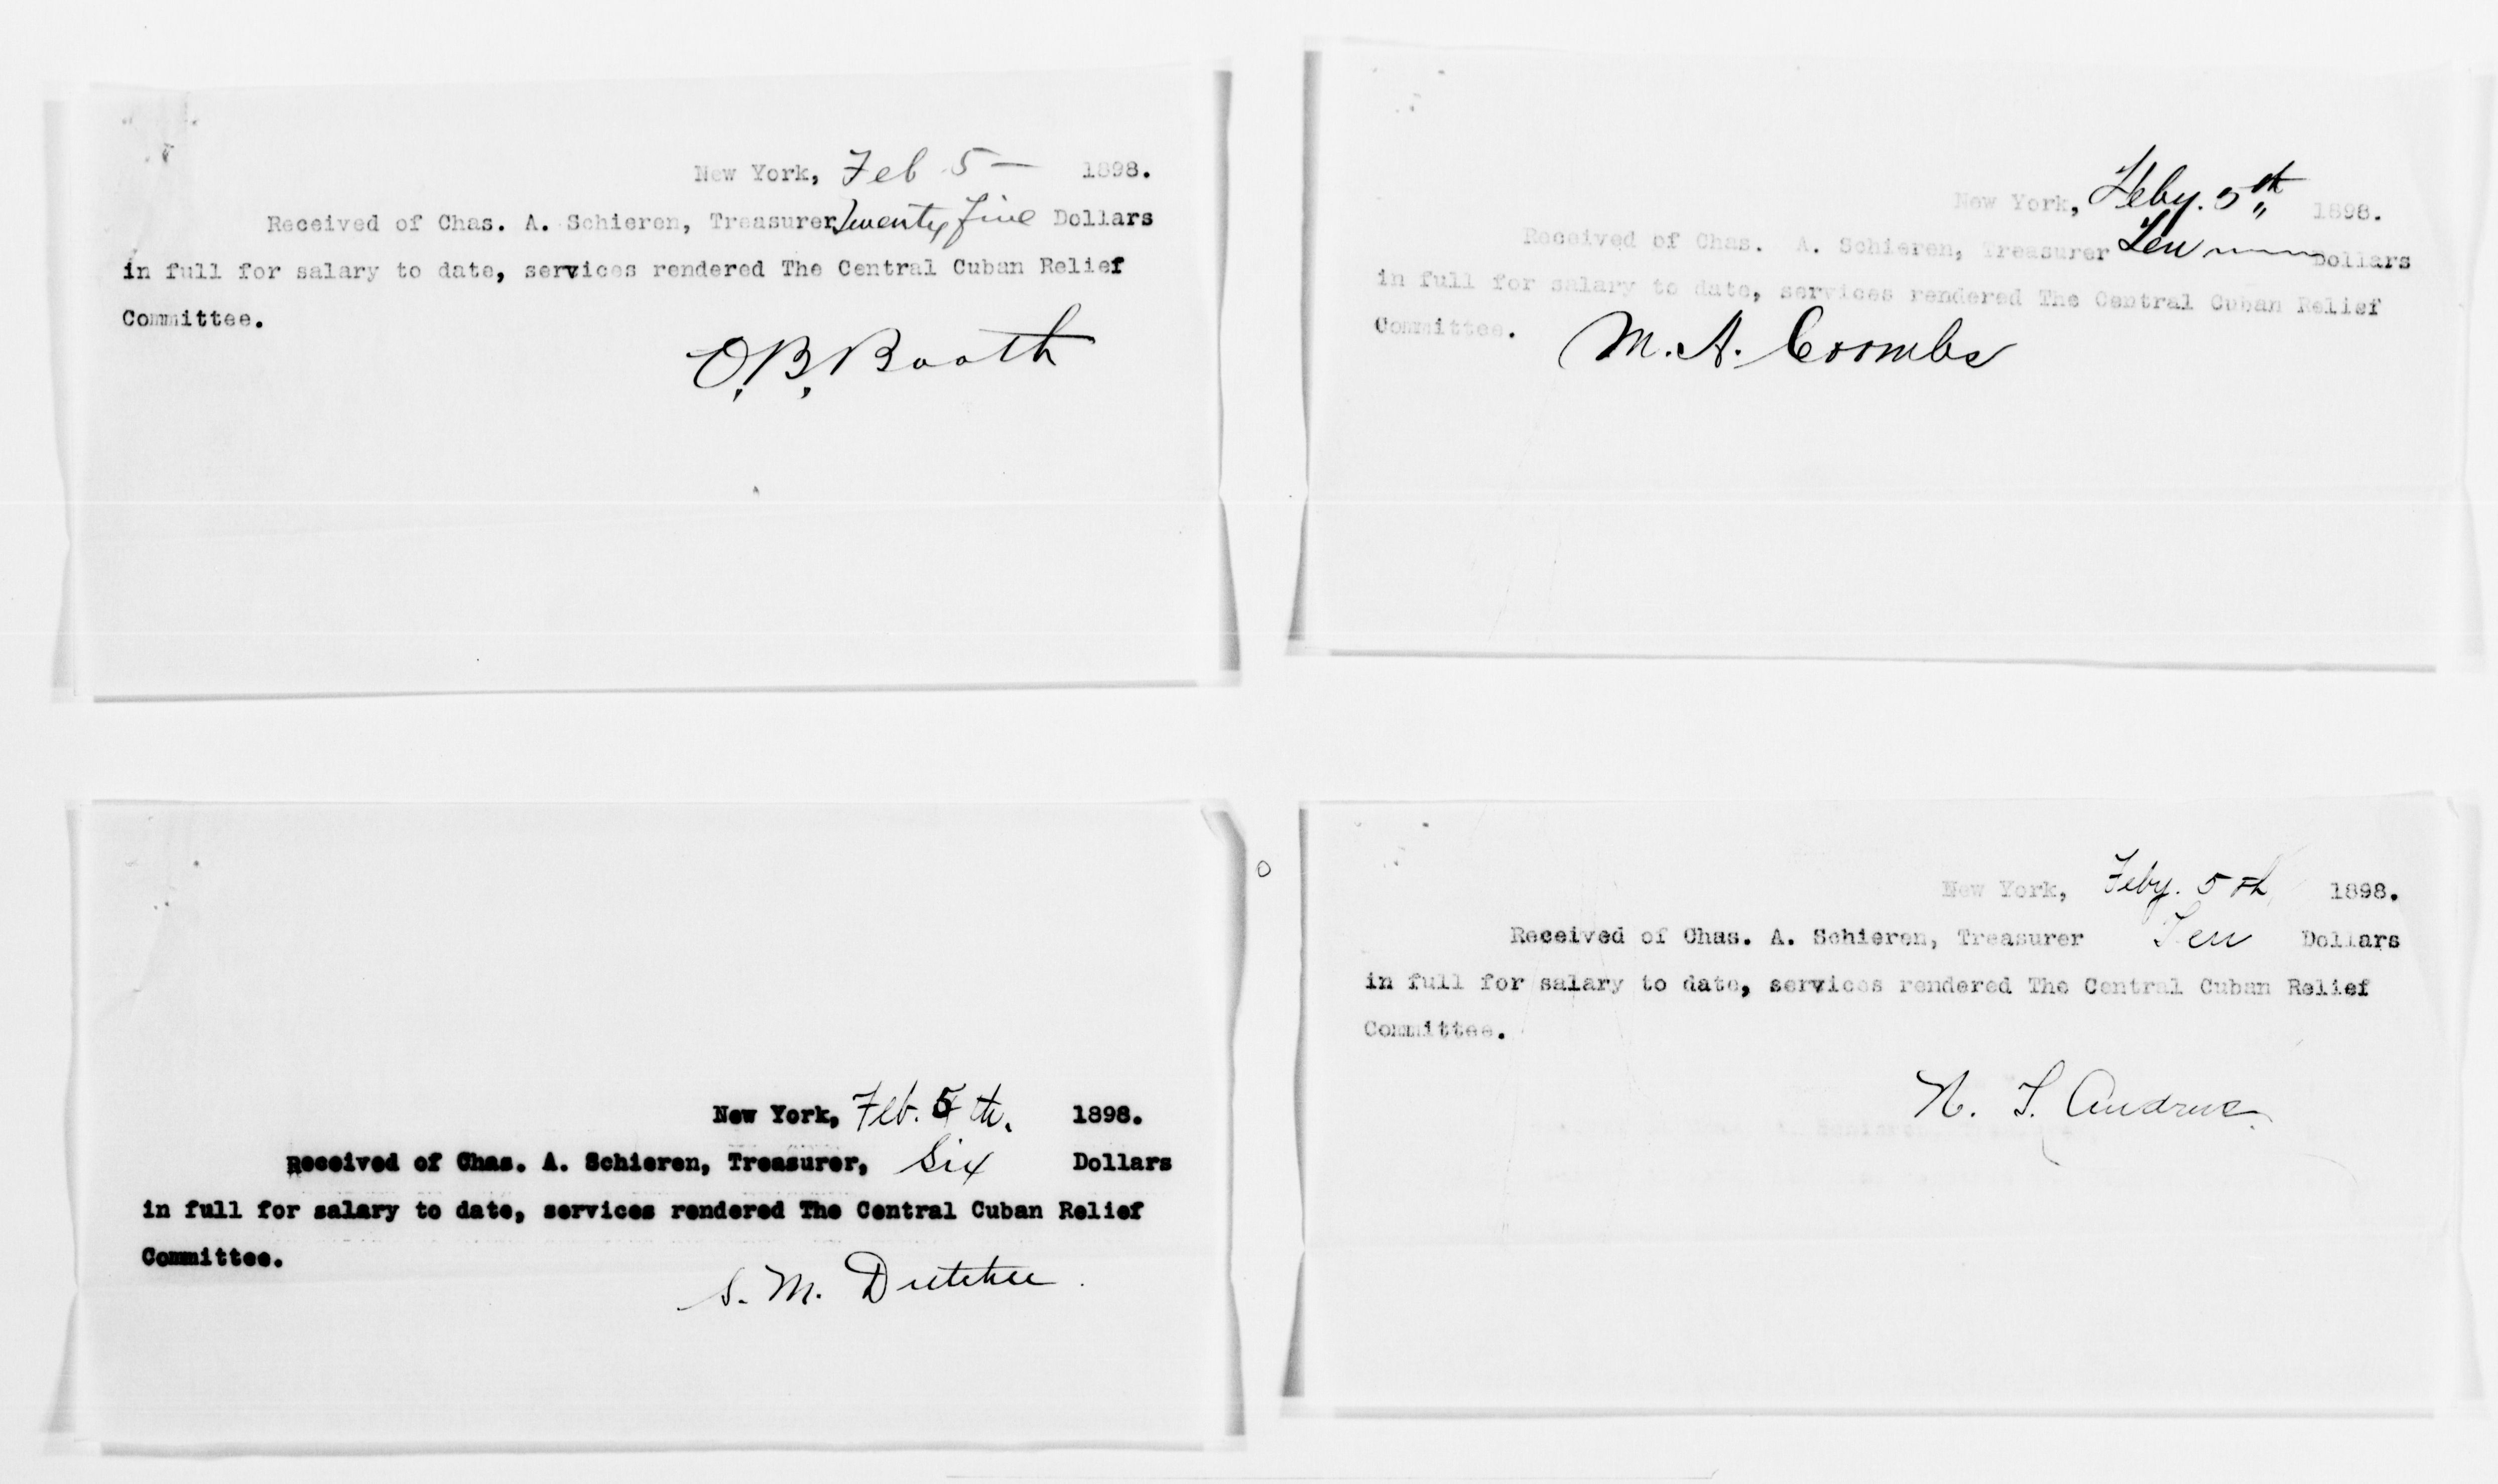 New York, Feb 5 — 1898.
Received of Chas. A. Schieren, Treasurer Twenty five Dollars
in full for salary to date, services rendered The Central Cuban Relief
Committee.
O. B. Booth
New York, Feby. 5th 1898.
Received of Chas. A. Schieren, Treasurer Ten Dollars
in full for salary to date, services rendered The Central Cuban Relief
Committee.
M. A. Coombs
New York, Feb. 5th. 1898.
Received of Chas. A. Schieren, Treasurer, Six Dollars
in full for salary to date, services rendered The Central Cuban Relief
Committee.
S. M. Dutcher
New York, Feby. 5th 1898.
Received of Chas. A. Schieren, Treasurer Ten Dollars
in full for salary to date, services rendered The Central Cuban Relief
Committee.
N. T. Andrus